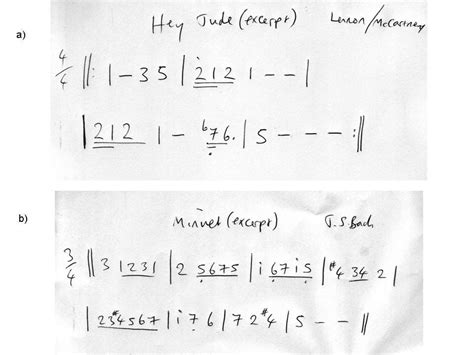 a)
Hey Jude (excerpt) Lennon/McCartney
4/4 ||: 1 – 3 5 | 2 1 2 1 – – |
| 2 1 2 1 – b7 6. | 5 – – – :||
b)
Minuet (excerpt) J.S. Bach
3/4 || 3 1231 | 2 5675 | i 67i5 | #4 34 2 |
| 23#4567 | i 7 6 | 7 2 #4 | 5 – – ||